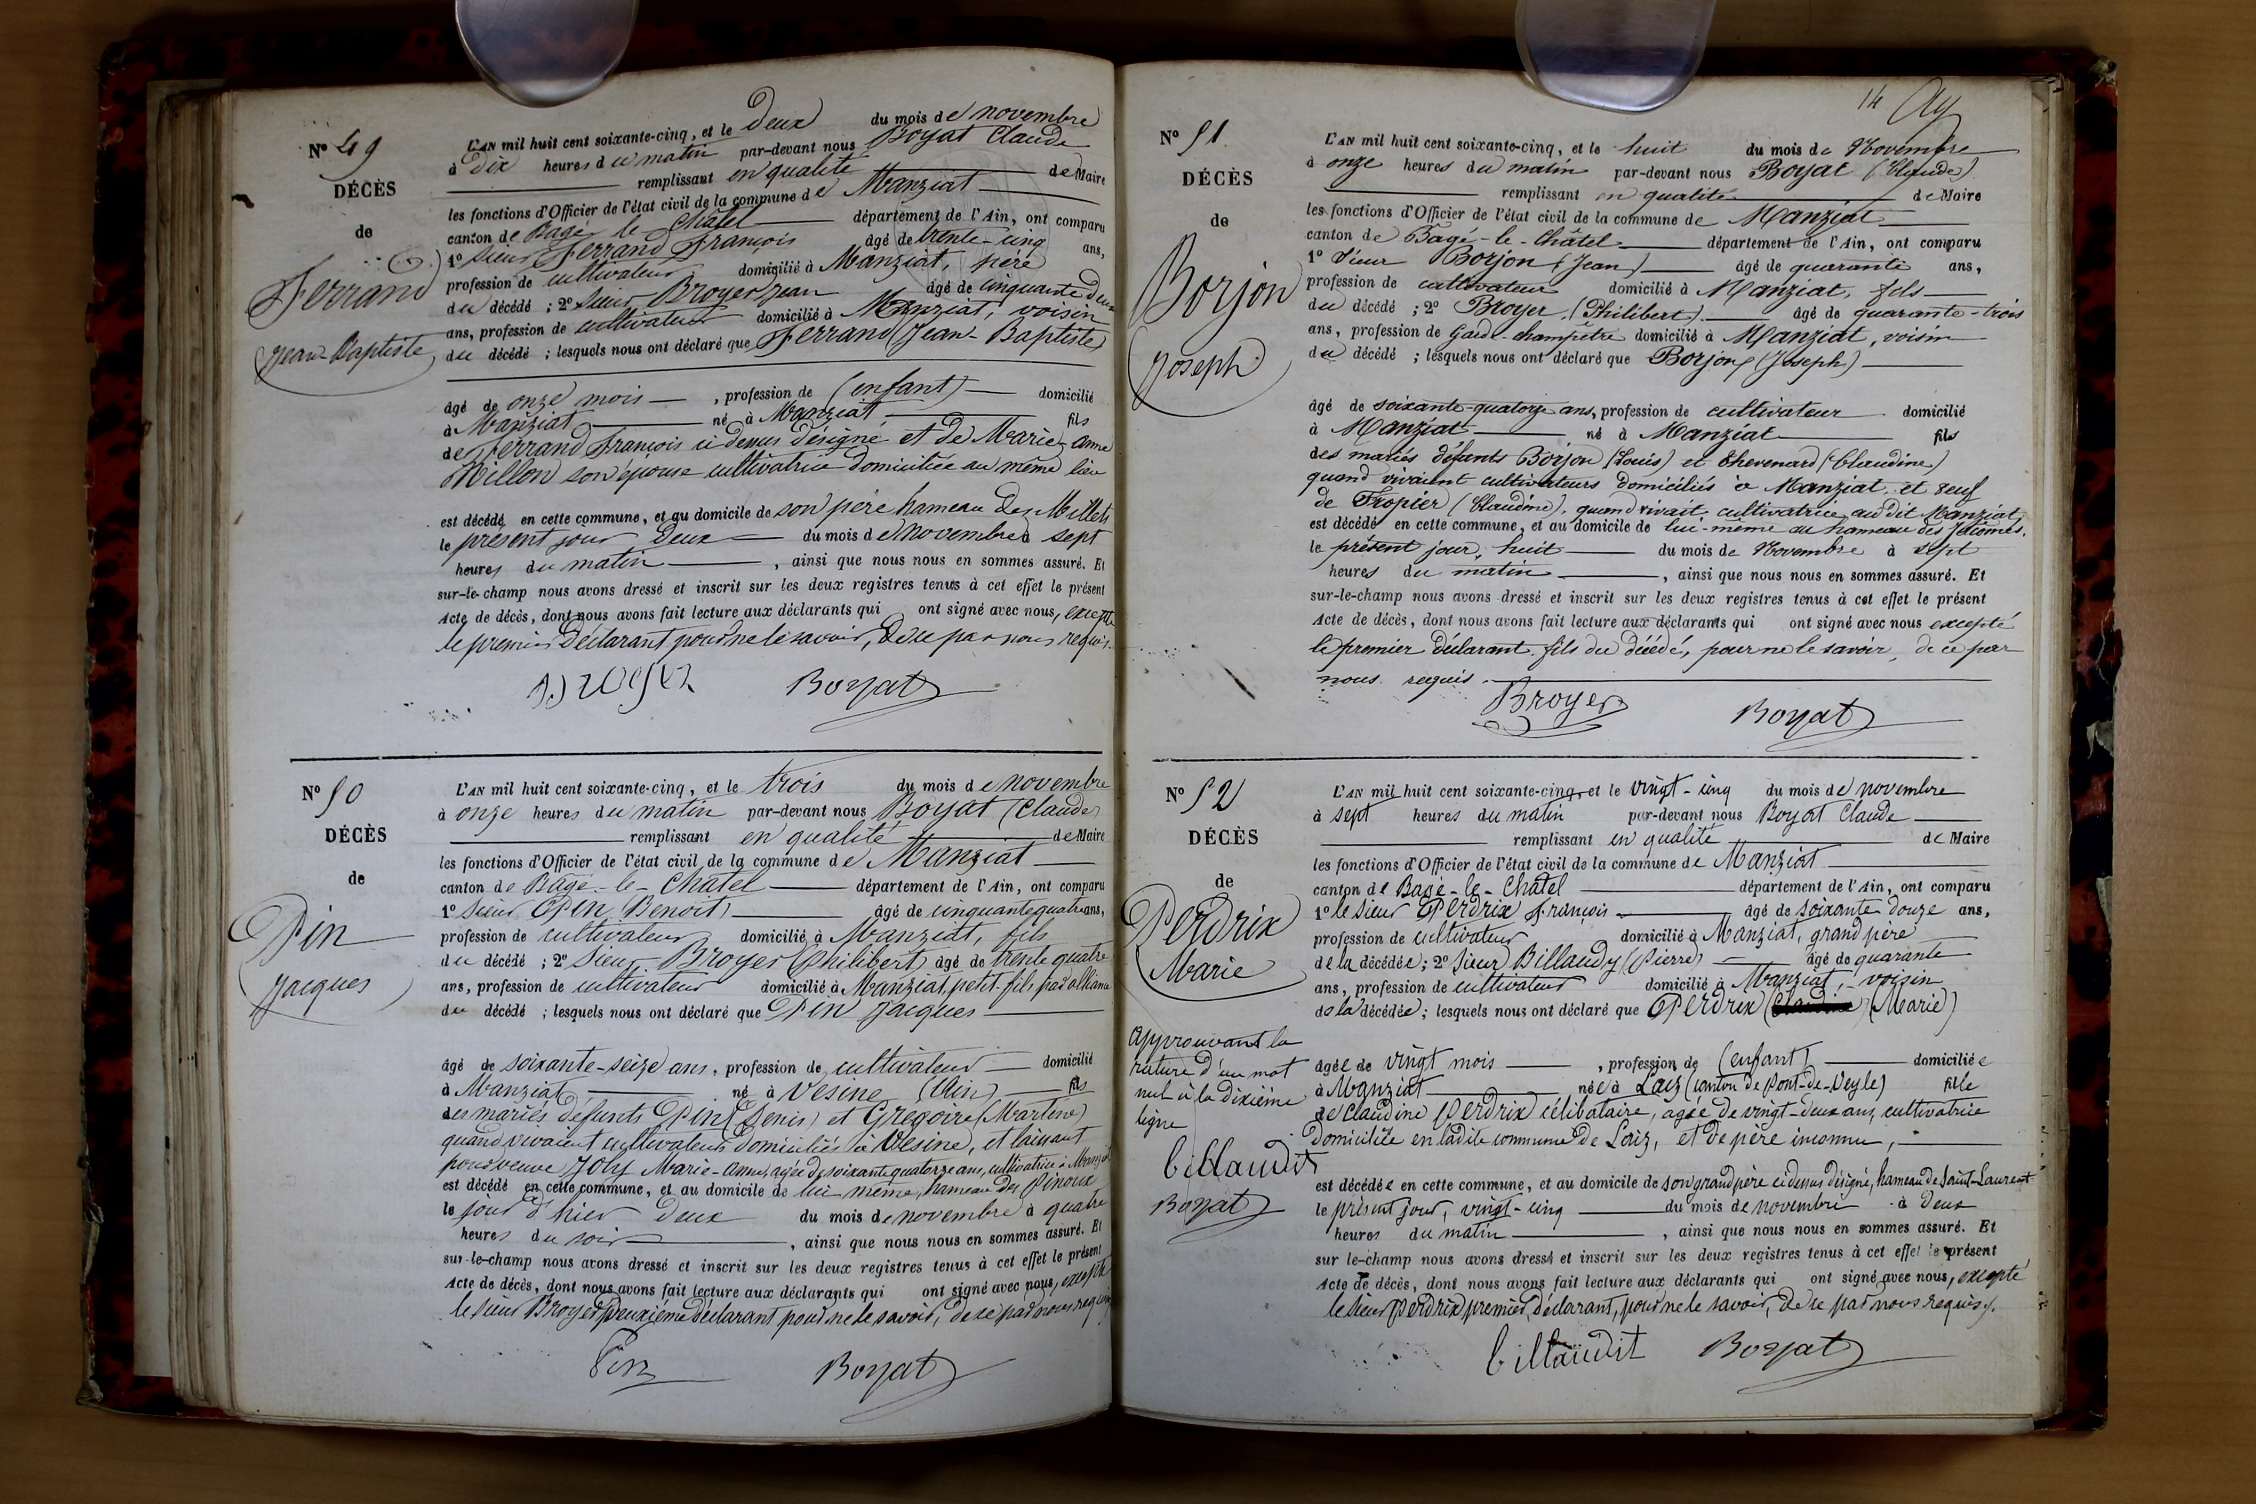 N° 49
DÉCÈS
de
Ferrand
Jean-Baptiste
L'AN mil huit cent soixante-cinq, et le deux du mois de novembre
à dix heures du matin par-devant nous Boyat Claude
remplissant en qualité de Maire
les fonctions d'Officier de l'état civil de la commune de Manziat
canton de Bagé le Chatel département de l'Ain, ont comparu
1° Sieur Ferrand François âgé de trente-cinq ans,
profession de cultivateur domicilié à Manziat, père
du décédé ; 2° Sieur Broyer Jean âgé de cinquante deux
ans, profession de cultivateur domicilié à Manziat, voisin
du décédé ; lesquels nous ont déclaré que Ferrand (Jean-Baptiste)
âgé de onze mois , profession de (enfant) domicilié
à Manziat né à Manziat fils
de Ferrand François ci dessus désigné et de Marie-Anne
Millon son épouse cultivatrice domiciliée au même lieu
est décédé en cette commune, et au domicile de son père hameau des Millets
le présent jour deux du mois de novembre à sept
heures du matin , ainsi que nous nous en sommes assuré. Et
sur-le-champ nous avons dressé et inscrit sur les deux registres tenus à cet effet le présent
Acte de décès, dont nous avons fait lecture aux déclarants qui ont signé avec nous, excepté
le premier déclarant pour ne le savoir, de ce par nous requis.
Broyer Boyat
N° 50
DÉCÈS
de
Pin
Jacques
L'AN mil huit cent soixante-cinq, et le trois du mois de novembre
à onze heures du matin par-devant nous Boyat (Claude)
remplissant en qualité de Maire
les fonctions d'Officier de l'état civil de la commune de Manziat
canton de Bagé-le-Chatel département de l'Ain, ont comparu
1° Sieur Pin (Benoit) âgé de cinquante quatre ans,
profession de cultivateur domicilié à Manziat, fils
du décédé ; 2° Sieur Broyer (Philibert) âgé de trente quatre
ans, profession de cultivateur domicilié à Manziat, petit-fils par alliance
du décédé ; lesquels nous ont déclaré que Pin Jacques
âgé de soixante-seize ans, profession de cultivateur domicilié
à Manziat né à Vesine (Ain) fils
des mariés défunts Pin (Denis) et Gregoire (Martene)
quand vivaient cultivateurs domiciliés à Vesine, et laissant
pour veuve Joly Marie-Anne, agée de soixante quatorze ans, cultivatrice à Manziat
est décédé en cette commune, et au domicile de lui même, hameau des Pinoux
le jour d'hier deux du mois de novembre à quatre
heures du soir , ainsi que nous nous en sommes assuré. Et
sur-le-champ nous avons dressé et inscrit sur les deux registres tenus à cet effet le présent
Acte de décès, dont nous avons fait lecture aux déclarants qui ont signé avec nous, excepté
le sieur Broyer deuxième déclarant pour ne le savoir, de ce par nous requis
Pin Boyat
14
N° 51
DÉCÈS
de
Borjon
Joseph
L'AN mil huit cent soixante-cinq, et le huit du mois de Novembre
à onze heures du matin par-devant nous Boyat (Claude)
remplissant en qualité de Maire
les fonctions d'Officier de l'état civil de la commune de Manziat
canton de Bagé-le-Châtel département de l'Ain, ont comparu
1° Sieur Borjon (Jean) âgé de quarante ans,
profession de cultivateur domicilié à Manziat, fils
du décédé ; 2° Broyer (Philibert) âgé de quarante-trois
ans, profession de Garde-champêtre domicilié à Manziat, voisin
du décédé ; lesquels nous ont déclaré que Borjon (Joseph)
âgé de soixante-quatorze ans, profession de cultivateur domicilié
à Manziat né à Manziat fils
des mariés défunts Borjon (Louis) et Thevenard (Claudine)
quand vivaient cultivateurs domiciliés à Manziat et veuf
de Tropier (Claudine), quand vivait cultivatrice au dit Manziat
est décédé en cette commune, et au domicile de lui-même au hameau des
le présent jour, huit du mois de Novembre à sept
heures du matin , ainsi que nous nous en sommes assuré. Et
sur-le-champ nous avons dressé et inscrit sur les deux registres tenus à cet effet le présent
Acte de décès, dont nous avons fait lecture aux déclarants qui ont signé avec nous excepté
le premier déclarant fils du décédé, pour ne le savoir, de ce par
nous requis.
Broyer Boyat
N° 52
DÉCÈS
de
Perdrix
Marie
approuvant la
rature d'un mot
nul à la dixième
ligne
billaudit
Boyat
L'AN mil huit cent soixante-cinq, et le vingt-cinq du mois de novembre
à sept heures du matin par-devant nous Boyat Claude
remplissant en qualité de Maire
les fonctions d'Officier de l'état civil de la commune de Manziat
canton de Bagé-le-Chatel département de l'Ain, ont comparu
1° le sieur Perdrix François âgé de soixante douze ans,
profession de cultivateur domicilié à Manziat, grand père
de la décédée ; 2° Sieur Billaudy (Pierre) âgé de quarante
ans, profession de cultivateur domicilié à Manziat, voisin
de la décédée ; lesquels nous ont déclaré que Perdrix (Marie)
âgée de vingt mois , profession de (enfant) domiciliée
à Manziat née à Laiz (canton de Pont-de-Veyle) fille
de Claudine Perdrix célibataire, agée de vingt-deux ans, cultivatrice
domiciliée en ladite commune de Laiz, et de père inconnu,
est décédée en cette commune, et au domicile de son grand père ci dessus désigné, hameau de Saint-Laurent
le présent jour, vingt-cinq du mois de novembre à deux
heures du matin , ainsi que nous nous en sommes assuré. Et
sur le-champ nous avons dressé et inscrit sur les deux registres tenus à cet effet le présent
Acte de décès, dont nous avons fait lecture aux déclarants qui ont signé avec nous, excepté
le sieur Perdrix premier déclarant, pour ne le savoir, de ce par nous requis.
billaudit Boyat